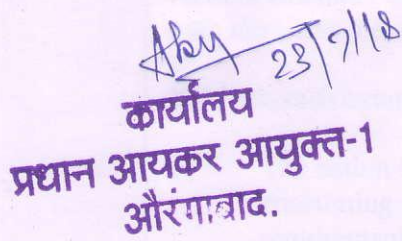 23/7/18
कार्यालय
प्रधान आयकर आयुक्त-1
औरंगाबाद.